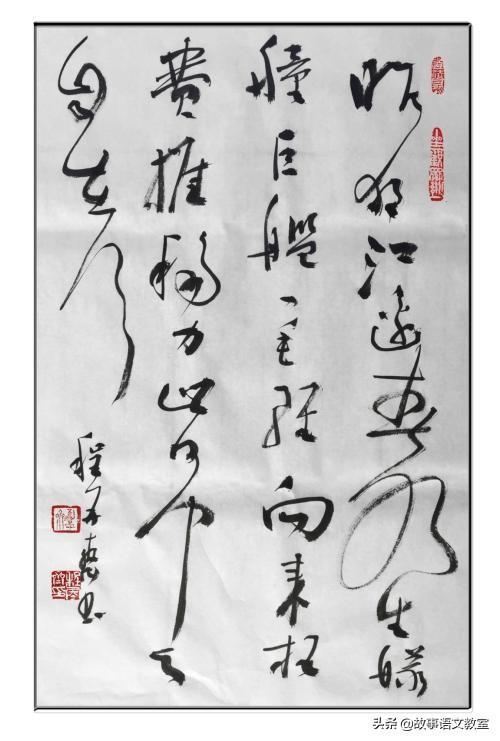 昨夜江邊春水生艨
艟巨艦一毛輕向來枉
費推移力此日中流
自在行
程 书
头条 @故事语文教室